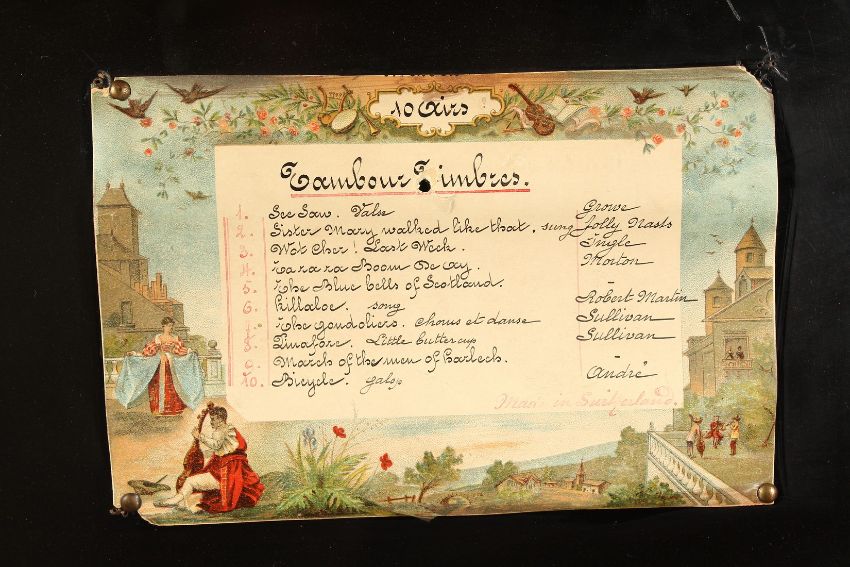 10 Airs
Tambour Timbres.
1. See Saw. Valse Crowe
2. Sister Mary walked like that, sung Jolly Nash
3. Wot Cher! Last Week. Ingle
4. Ta ra ra Boom De Ay. Morton
5. The Blue bells of Scotland. -
6. Killaloe. song Robert Martin
7. The gondoliers. Chorus et danse Sullivan
8. Pinafore. Little buttercup Sullivan
9. March of the men of Harlech. -
10. Bicycle. galop André
Made in Switzerland.